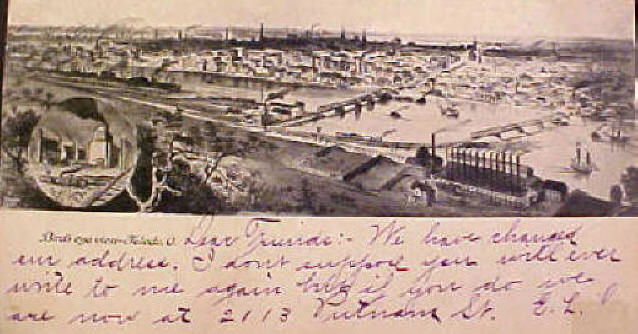 Bird's eye view—Toledo, O. Dear Friends:- We have changed
our address. I don't suppose you will ever
write to me again but if you do we
are now at 2113 Putnam St. E. L.